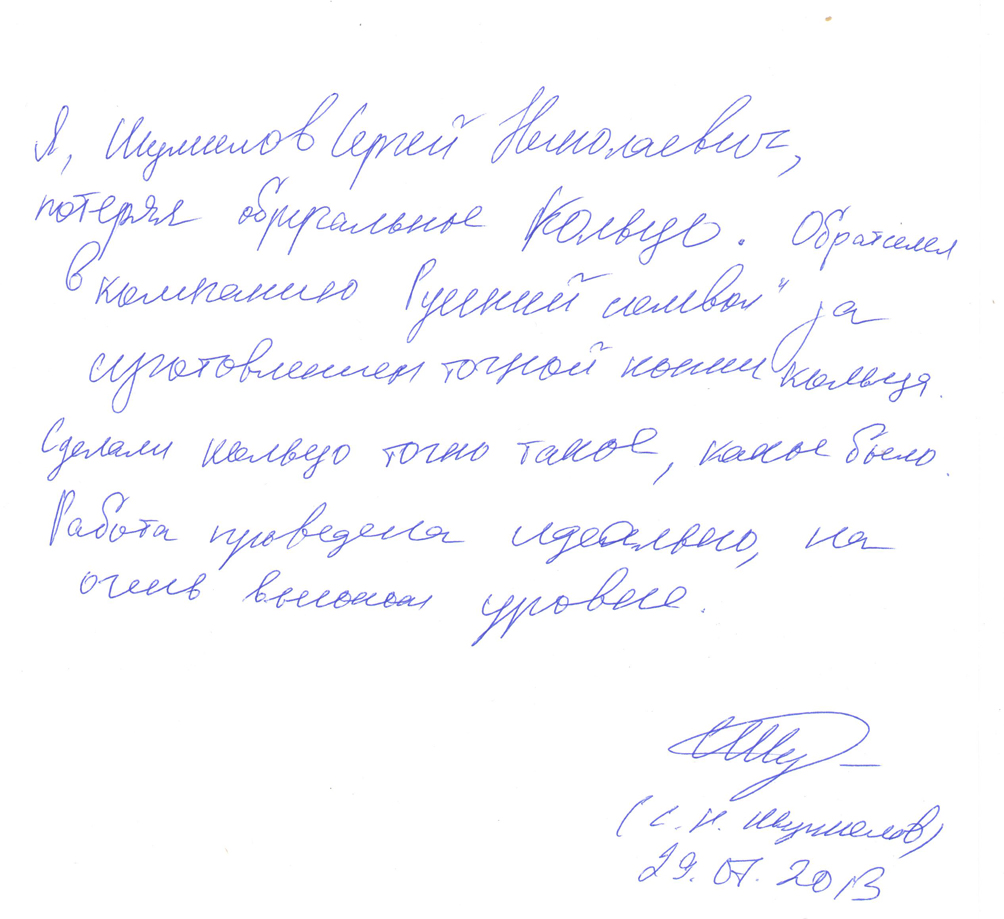 Я, Шумилов Сергей Николаевич,
потерял обручальное кольцо. Обратился
в компанию Русский символ" за
изготовлением точной копии кольца.
Сделали кольцо точно такое, какое было.
Работа проведена идеально, на
очень высоком уровне.
(С. Н. Шумилов)
29.07.2013